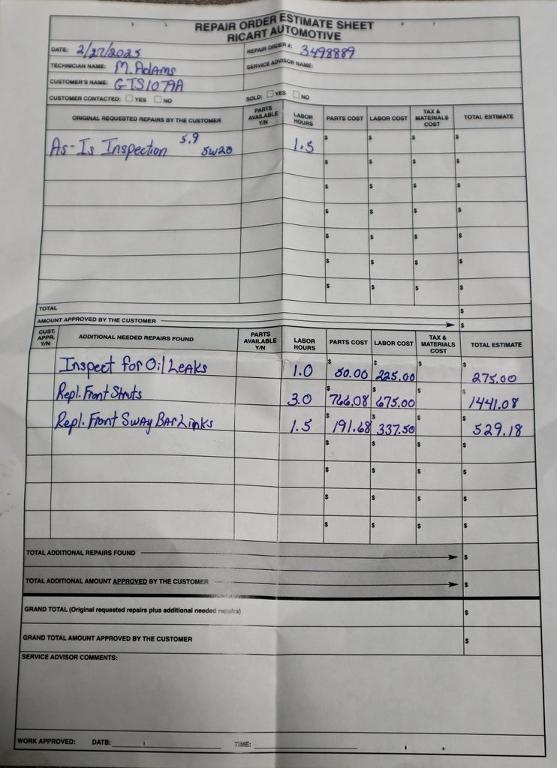 REPAIR ORDER ESTIMATE SHEET
RICART AUTOMOTIVE
DATE: 2/27/2025 REPAIR ORDER #: 3498889
TECHNICIAN NAME: M. Adams SERVICE ADVISOR NAME:
CUSTOMER'S NAME: GTS1079A
CUSTOMER CONTACTED: YES NO SOLD: YES NO
ORIGINAL REQUESTED REPAIRS BY THE CUSTOMER PARTS AVAILABLE Y/N LABOR HOURS PARTS COST LABOR COST TAX & MATERIALS COST TOTAL ESTIMATE
As-Is Inspection 5.9 5W20 1.5 $ $ $ $
$ $ $ $
$ $ $ $
$ $ $ $
$ $ $ $
$ $ $ $
$ $ $ $
TOTAL $
AMOUNT APPROVED BY THE CUSTOMER $
CUST. APPR. Y/N ADDITIONAL NEEDED REPAIRS FOUND PARTS AVAILABLE Y/N LABOR HOURS PARTS COST LABOR COST TAX & MATERIALS COST TOTAL ESTIMATE
Inspect for Oil Leaks 1.0 $ 50.00 $ 225.00 $ $ 275.00
Repl. Front Struts 3.0 $ 766.08 $ 675.00 $ $ 1441.08
Repl. Front Sway Bar Links 1.5 $ 191.68 $ 337.50 $ $ 529.18
$ $ $ $
$ $ $ $
$ $ $ $
$ $ $ $
TOTAL ADDITIONAL REPAIRS FOUND $
TOTAL ADDITIONAL AMOUNT APPROVED BY THE CUSTOMER $
GRAND TOTAL (Original requested repairs plus additional needed repairs) $
GRAND TOTAL AMOUNT APPROVED BY THE CUSTOMER $
SERVICE ADVISOR COMMENTS:
WORK APPROVED: DATE: TIME: